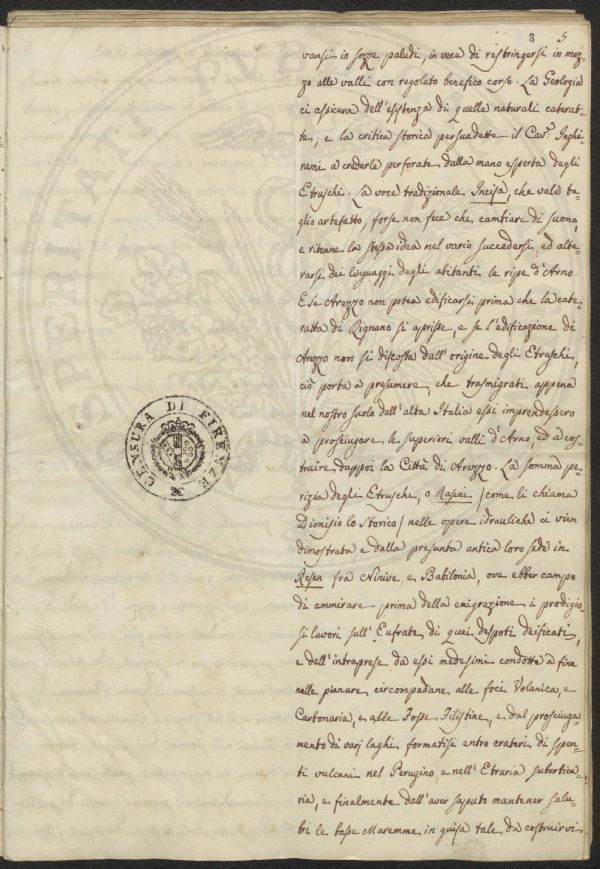 3 5
vansi in sozze paludi, in vece di restringersi in mez-
zo alle valli con regolato benefico corso. La Geologia
ci assicura dell'esistenza di quelle naturali cateratt-
te, e la critica storica persuadette il Cav.r Inghi-
rami a crederle perforate dalla mano esperta degli
Etruschi. La voce tradizionale Incisa, che vale ta-
glio artefatto, forse non fece che cambiare di suono,
e ritenne la stessa idea nel vario succedersi, ed alte-
rarsi dei linguaggi degli abitanti le ripe d'Arno.
E se Arezzo non potea edificarsi prima che la cate-
ratta di Rignano si aprisse, e se l'edificazione di
Arezzo non si discosta dall'origine degli Etruschi,
ciò porta a presumere, che trasmigrati appena
nel nostro suolo dall'alta Italia essi imprendessero
a prosciugare le superiori valli d'Arno, ed a cos-
truire dappoi la Città di Arezzo. La somma pe-
rizia degli Etruschi, o Raseni (come li chiama
Dionisio lo Storico) nelle opere idrauliche ci vien
dimostrata e dalla presunta antica loro sede in
Resen fra Ninive, e Babilonia, ove ebber campo
di ammirare prima della emigrazione i prodigio-
si lavori sull'Eufrate di quei despoti deificati,
e dall'intraprese da essi medesimi condotte a fine
nelle pianure circompadane alle foci Volanica, e
Carbonaria, e alle Fosse Filistine, e dal prosciuga-
mento di varj laghi formatisi entro crateri di spen-
ti vulcani nel Perugino e nell'Etruria suburbica-
ria, e finalmente dall'aver saputo mantener salu-
bri le basse Maremme in guisa tale da costruirvi
CENSURA DI FIRENZE